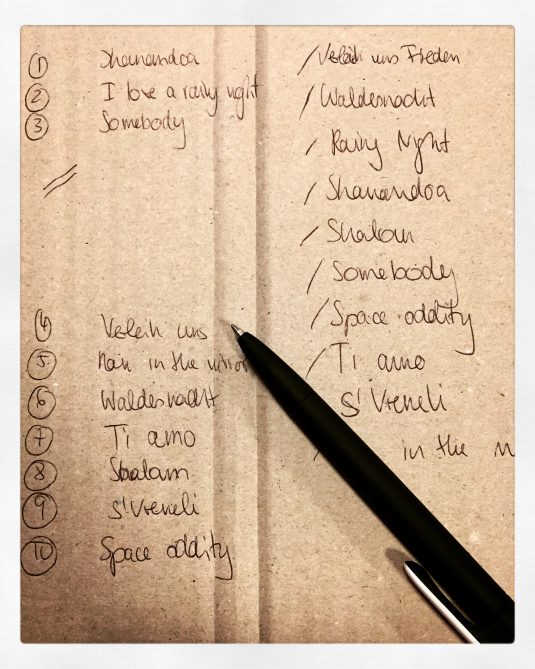 1 Shanandoa
2 I love a rainy night
3 Somebody
4 Verleih uns
5 Man in the mirror
6 Waldesnacht
7 Ti amo
8 Shalom
9 S'Vreneli
10 Space oddity
/ Verleih uns Frieden
/ Waldesnacht
/ Rainy Night
/ Shanandoa
/ Shalom
/ Somebody
/ Space oddity
/ Ti amo
S'Vreneli
in the m